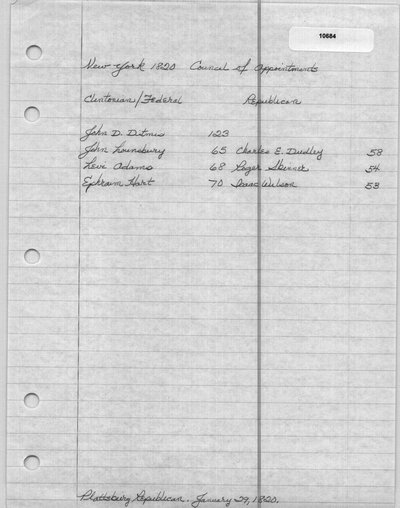 10684
New York 1820 Council of Appointments
Clintonian/Federal Republican
John D. Ditmis 123
John Lounsbury 65 Charles E. Dudley 58
Levi Adams 68 Roger Skinner 54
Ephraim Hart 70 Isaac Wilson 53
Plattsburg Republican. January 29, 1820.